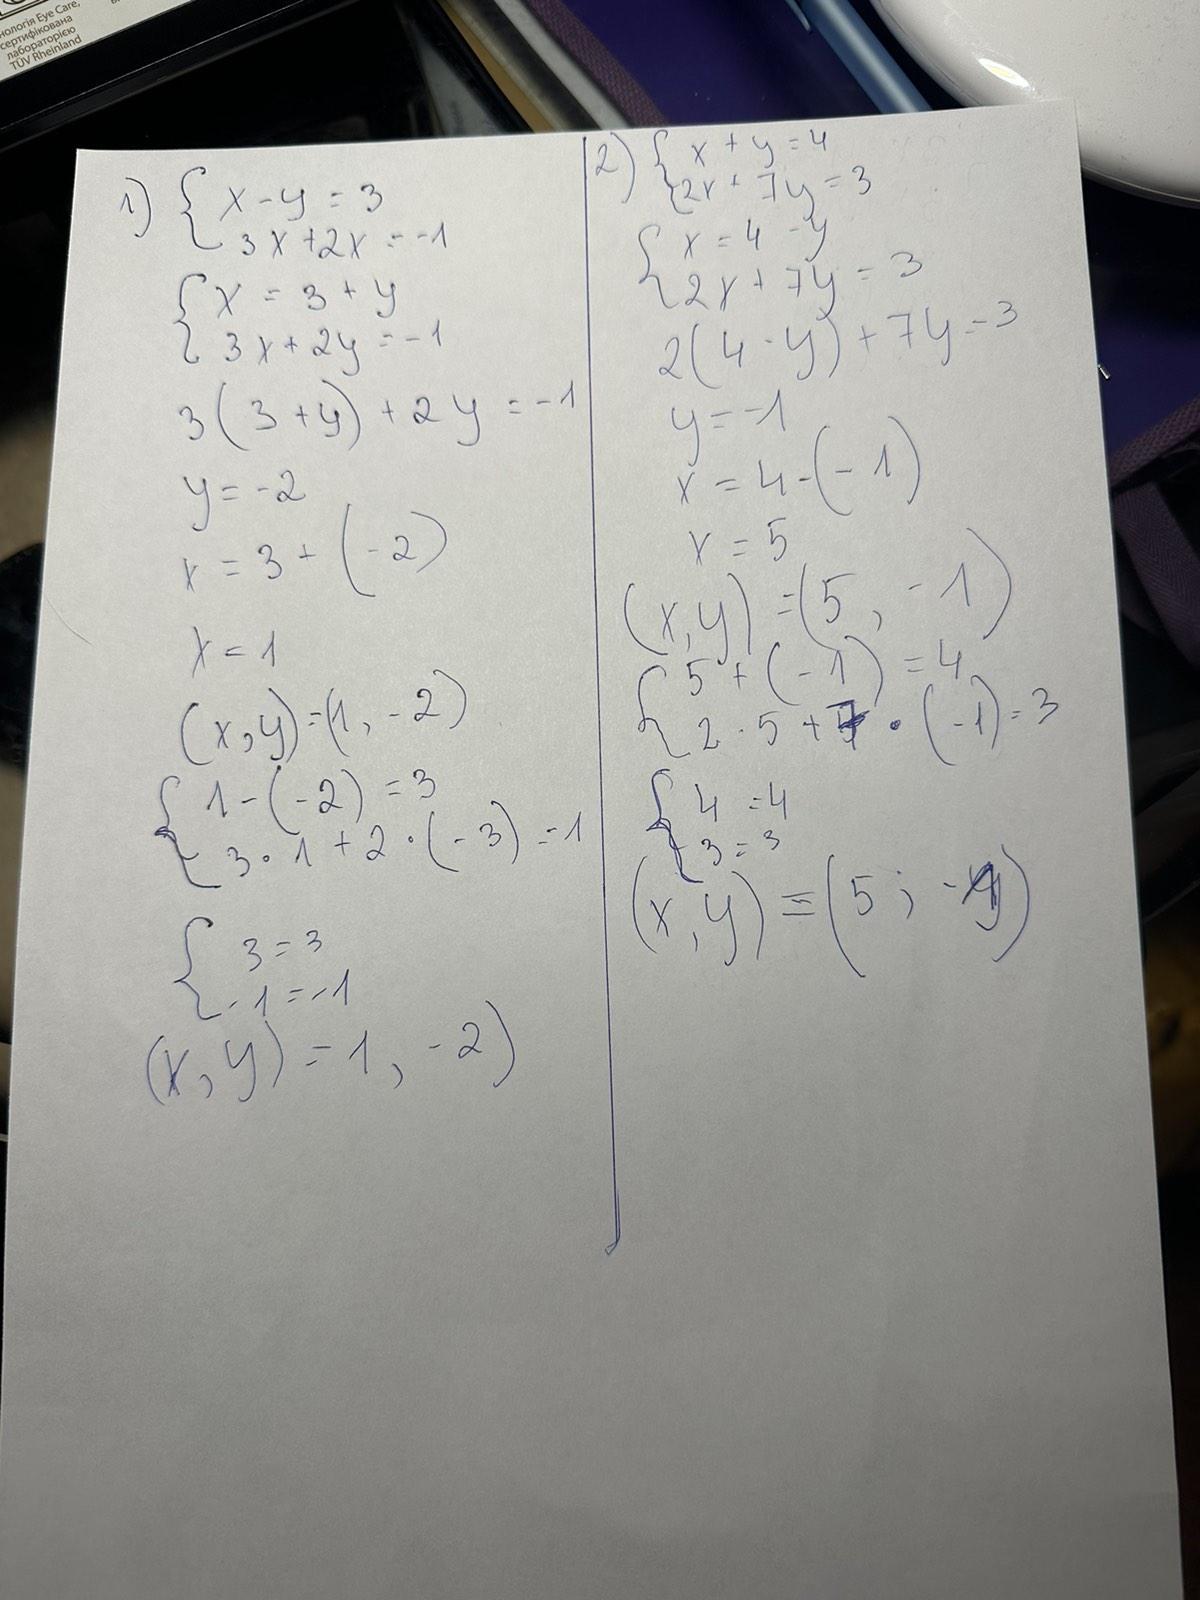 нологія Eye Care,
сертифікована
лабораторією
TÜV Rheinland
1) { x - y = 3
3x + 2x = -1
{ x = 3 + y
3x + 2y = -1
3(3 + y) + 2y = -1
y = -2
x = 3 + (-2)
x = 1
(x, y) = (1, -2)
{ 1 - (-2) = 3
3 · 1 + 2 · (-3) = 1
{ 3 = 3
-1 = -1
(x, y) = 1, -2)
2) { x + y = 4
2x + 7y = 3
{ x = 4 - y
2x + 7y = 3
2(4 - y) + 7y = 3
y = -1
x = 4 - (-1)
x = 5
(x, y) = (5, -1)
{ 5 + (-1) = 4
2 · 5 + 7 · (-1) = 3
{ 4 = 4
3 = 3
(x, y) = (5; -